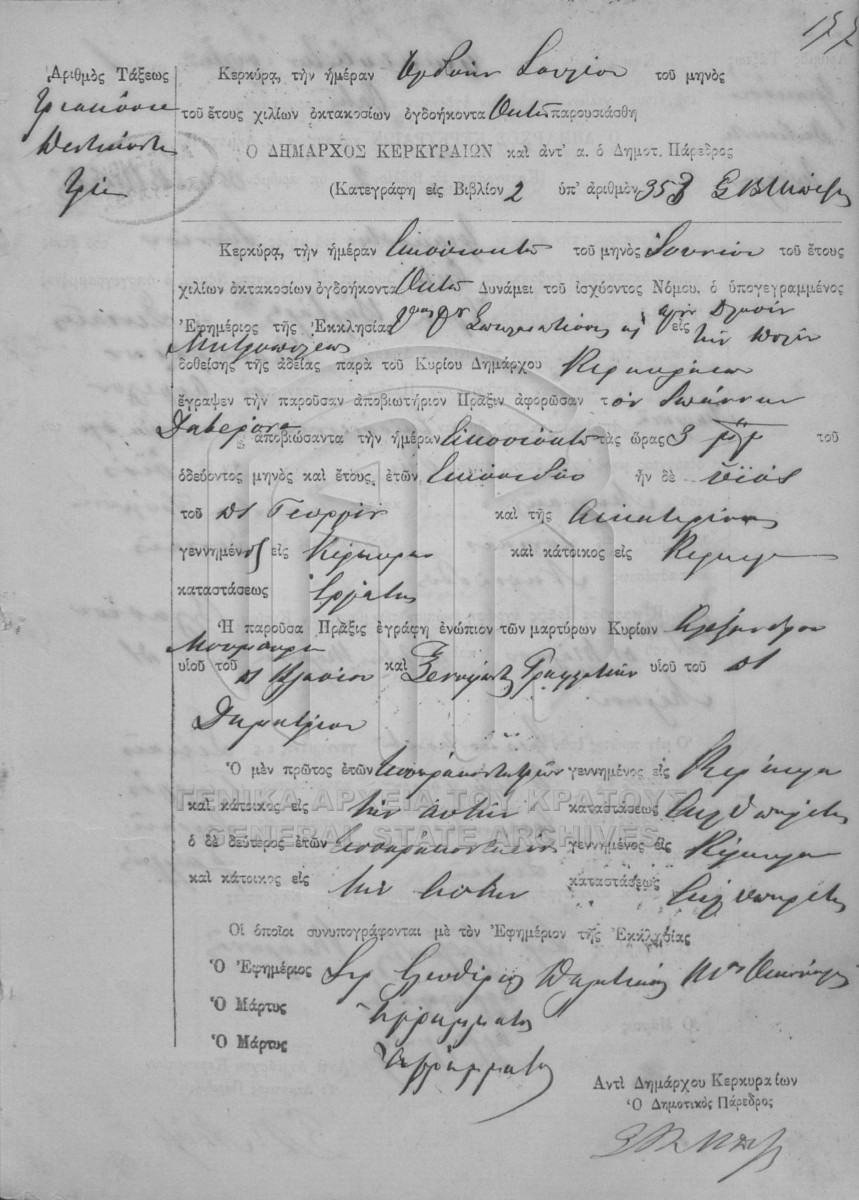 177
Ἀριθμὸς Τάξεως
Τριακόσια
Πεντήκοντα
Τρία
Κερκύρᾳ, τὴν ἡμέραν Ἰουλίου τοῦ μηνὸς
τοῦ ἔτους χιλίων ὀκτακοσίων ὀγδοήκοντα Οκτώ παρουσιάσθη
Ο ΔΗΜΑΡΧΟΣ ΚΕΡΚΥΡΑΙΩΝ καὶ ἀντ' α. ὁ Δημοτ. Πάρεδρος
(Κατεγράφη εἰς Βιβλίον 2 ὑπ' ἀριθμὸν 353
Κερκύρᾳ, τὴν ἡμέραν Εικοσιοκτώ τοῦ μηνὸς Ιουνίου τοῦ ἔτους
χιλίων ὀκτακοσίων ὀγδοήκοντα Οκτώ Δυνάμει τοῦ ἰσχύοντος Νόμου, ὁ ὑπογεγραμμένος
Ἐφημέριος τῆς Ἐκκλησίας Σπηλαιωτίσσης εἰς την Πόλιν
Μητροπόλεως
δοθείσης τῆς ἀδείας παρὰ τοῦ Κυρίου Δημάρχου Κερκυραίων
ἔγραψεν τὴν παροῦσαν ἀποβιωτήριον Πρᾶξιν ἀφορῶσαν τον Ιωάννην
ἀποβιώσαντα τὴν ἡμέραν Εικοσιοκτώ τὰς ὥρας 3 μμ τοῦ
ὁδεύοντος μηνὸς καὶ ἔτους, ἐτῶν Εικοσιδύο ἦν δὲ υἱός
τοῦ Γεωργίου καὶ τῆς Αικατερίνης
γεννημένος εἰς Κέρκυραν καὶ κάτοικος εἰς Κέρκυρα
καταστάσεως Εργάτης
Ἡ παροῦσα Πρᾶξις ἐγράφη ἐνώπιον τῶν μαρτύρων Κυρίων Αλεξάνδρου
υἱοῦ τοῦ καὶ υἱοῦ τοῦ
Δημητρίου
Ὁ μὲν πρῶτος ἐτῶν γεννημένος εἰς Κέρκυρα
καὶ κάτοικος εἰς την αυτήν καταστάσεως Εκκλ Υπηρέτης
ὁ δὲ δεύτερος ἐτῶν γεννημένος εἰς Κέρκυρα
καὶ κάτοικος εἰς την αυτήν καταστάσεως Εκκλ Υπηρέτης
ΓΕΝΙΚΑ ΑΡΧΕΙΑ ΤΟΥ ΚΡΑΤΟΥΣ
GENERAL STATE ARCHIVES
Οἱ ὁποῖοι συνυπογράφονται μὲ τὸν Ἐφημέριον τῆς Ἐκκλησίας
Ὁ Ἐφημέριος Ιερ Ελευθέριος
Ὁ Μάρτυς Αγράμματος
Ὁ Μάρτυς Αγράμματος
Ἀντὶ Δημάρχου Κερκυραίων
Ὁ Δημοτικὸς Πάρεδρος